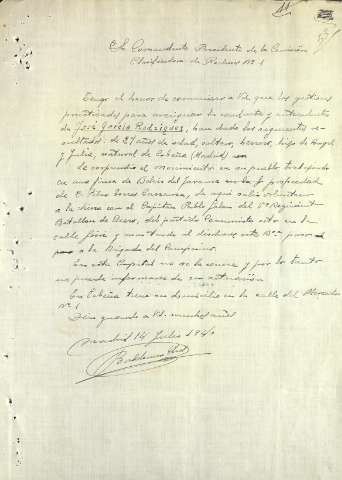 Al Comandante Presidente de la Comisión
Clasificadora de Presos Nº 1
Tengo el honor de comunicar a Vd. que las gestiones
practicadas para averiguar la conducta y antecedentes
de José García Rodríguez, han dado los siguientes re-
sultados: de 27 años de edad, soltero, hijo de Angel
y Julia, natural de Cobeña (Madrid)
Le sorprendió el movimiento en su pueblo trabajando
en una finca de del Jarama propiedad
de D. de aquí salió voluntario
a la con el Capitan Pablo del 5º Regimiento
Batallon de Acero, del partido Comunista sito en la
calle y cuando el dicho Bon paso
a la Brigada del Campesino.
En esta Capital no se le conoce y por lo tanto
no puede informarse de su actuación
En Cobeña tiene su domicilio en la calle del
Nº 1
Dios guarde a Vd. muchos años
Madrid 14 Julio 1940